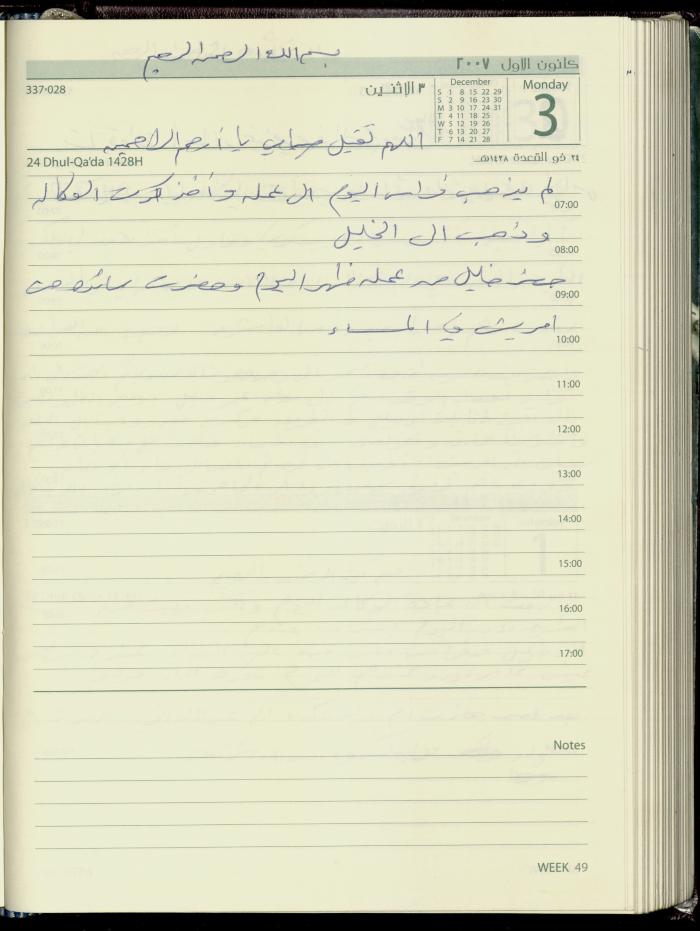 بسم الله الرحمن الرحيم
كانون الاول ٢٠٠٧
337-028
٣ الاثنين
December
S 1 8 15 22 29
S 2 9 16 23 30
M 3 10 17 24 31
T 4 11 18 25
W 5 12 19 26
T 6 13 20 27
F 7 14 21 28
Monday
3
اللهم تقبل يا أرحم الراحمين
24 Dhul-Qa'da 1428H
٢٤ ذو القعدة ١٤٢٨هـ
لم يذهب فراس اليوم الى عمله و أخذ كرت الوكاله
07:00
وذهب الى الخليل
08:00
حضر خليل من عمله ظهر اليوم وحضرت
09:00
امريش في المساء
10:00
11:00
12:00
13:00
14:00
15:00
16:00
17:00
Notes
WEEK 49